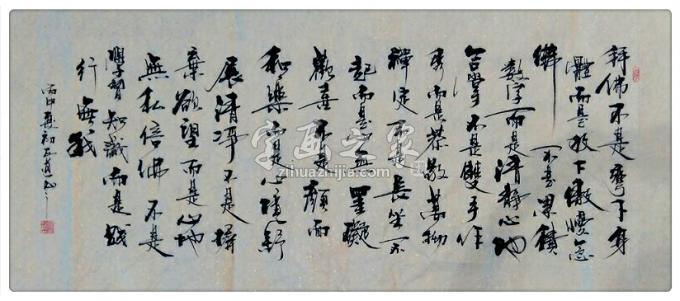 拜佛不是彎下身
體而是放下傲慢念
佛不是累積
數字而是清靜心地
合掌不是雙手作
秀而是恭敬萬物
禪定不是長坐不
起而是心無罣礙
歡喜不是顏面
和樂而是心境舒
展清淨不是摒
棄欲望而是心地
無私信佛不是
學習知識而是踐
行無我
丙申夏初
字画之家
zihuazhijia.com